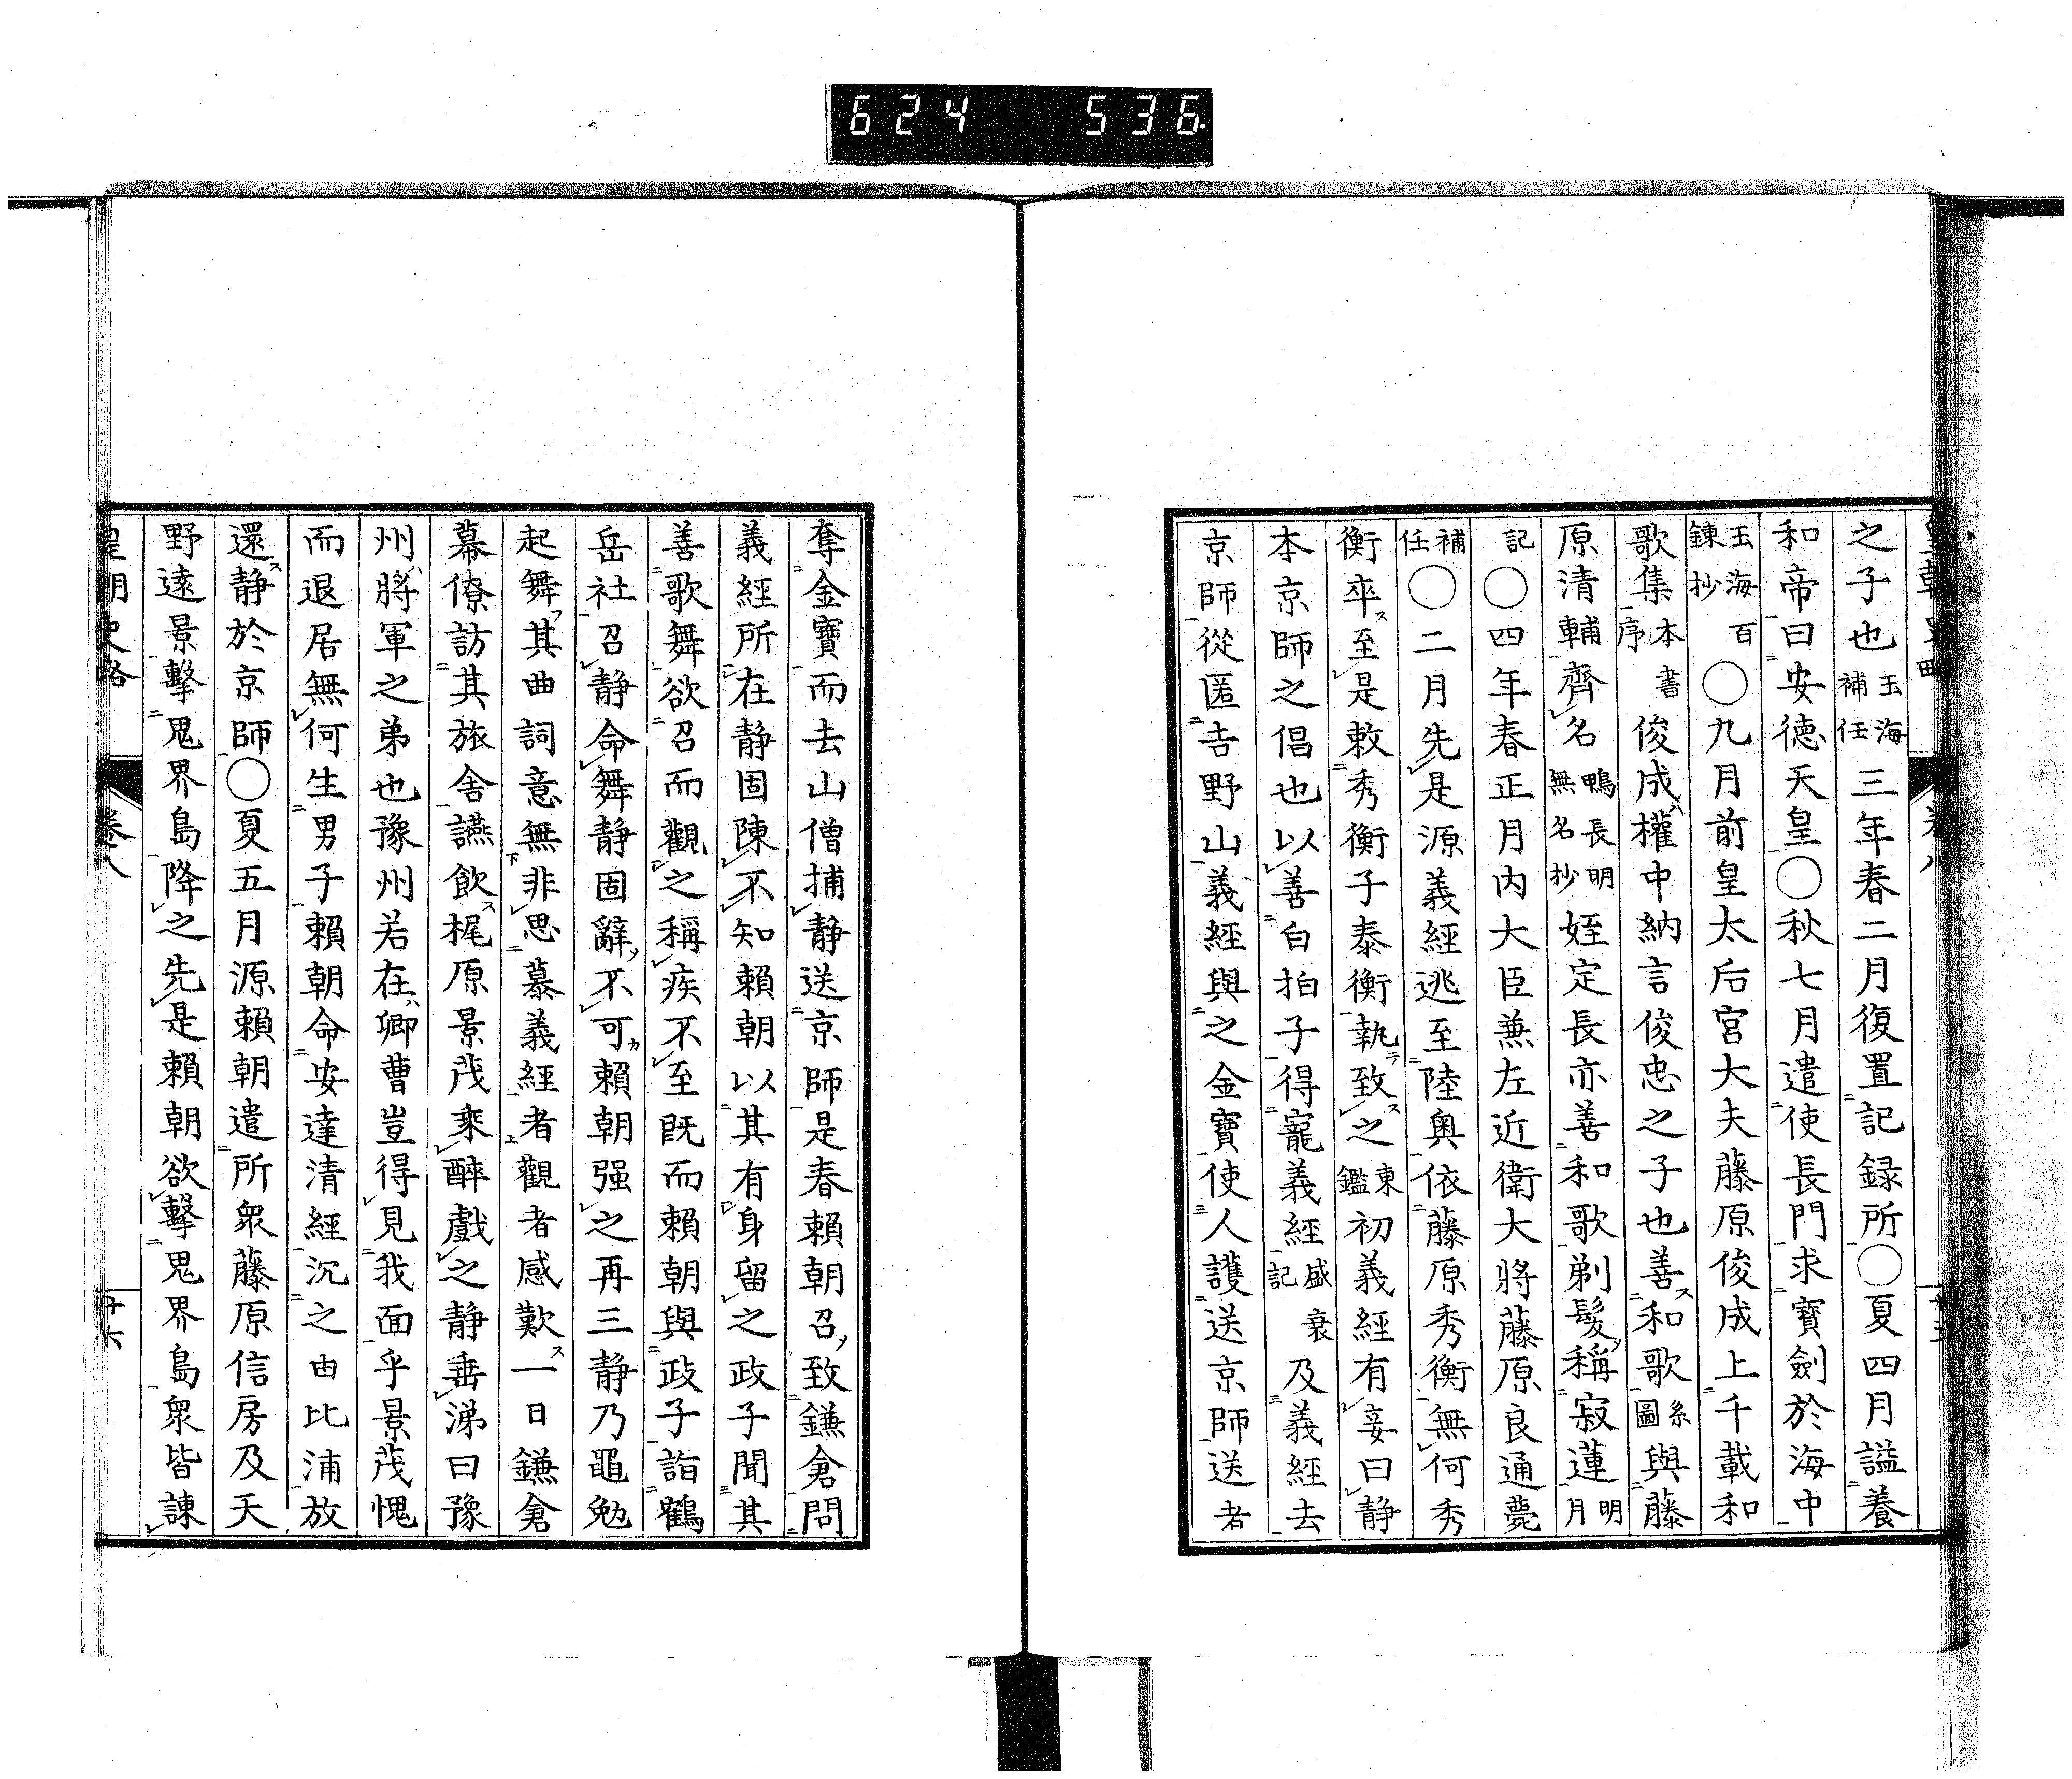 624 536
之子也玉海補任三年春二月復置記録所〇夏四月謚養
和帝曰安德天皇〇秋七月遣使長門求寳劍於海中
玉海百鍊抄〇九月前皇太后宮大夫藤原俊成上千載和
歌集本書序俊成權中納言俊忠之子也善和歌系圖與藤
原清輔齊名鴨長明無名抄姪定長亦善和歌剃髮稱寂蓮明月
記〇四年春正月內大臣兼左近衛大將藤原良通薨
補任〇二月先是源義經逃至陸奧依藤原秀衡無何秀
衡卒至是敕秀衡子泰衡執致之東鑑初義經有妾曰静
本京師之倡也以善白拍子得寵義經盛衰記及義經去
京師從匿吉野山義經與之金寳使人護送京師送者
奪金寳而去山僧捕静送京師是春賴朝召致鎌倉問
義經所在静固陳不知賴朝以其有身留之政子聞其
善歌舞欲召而觀之稱疾不至既而賴朝與政子詣鶴
岳社召静命舞静固辭不可賴朝强之再三静乃黽勉
起舞其曲詞意無非思慕義經者觀者感歎一日鎌倉
幕僚訪其旅舍讌飲梶原景茂乘醉戲之静垂涕曰豫
州將軍之弟也豫州若在卿曹豈得見我面乎景茂愧
而退居無何生男子賴朝命安達清經沉之由比浦放
還静於京師〇夏五月源賴朝遣所衆藤原信房及天
野遠景擊鬼界島降之先是賴朝欲擊鬼界島衆皆諫
皇朝史略 卷八 十六